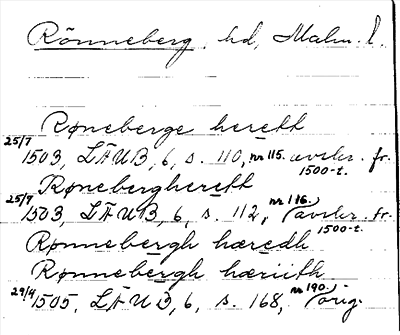 Rönneberg hd, Malm. l.
Røneberge herett
25/7 1503, LÄUB, 6, s. 110, nr 115. avskr. fr. 1500-t.
Rønebergherett
25/7 1503, LÄUB, 6, s. 112, nr 116. avskr. fr. 1500-t.
Rønnebergh hæredh
Rønnebergh hæriith
29/4 1505, LÄUB, 6, s. 168, nr 190. orig.